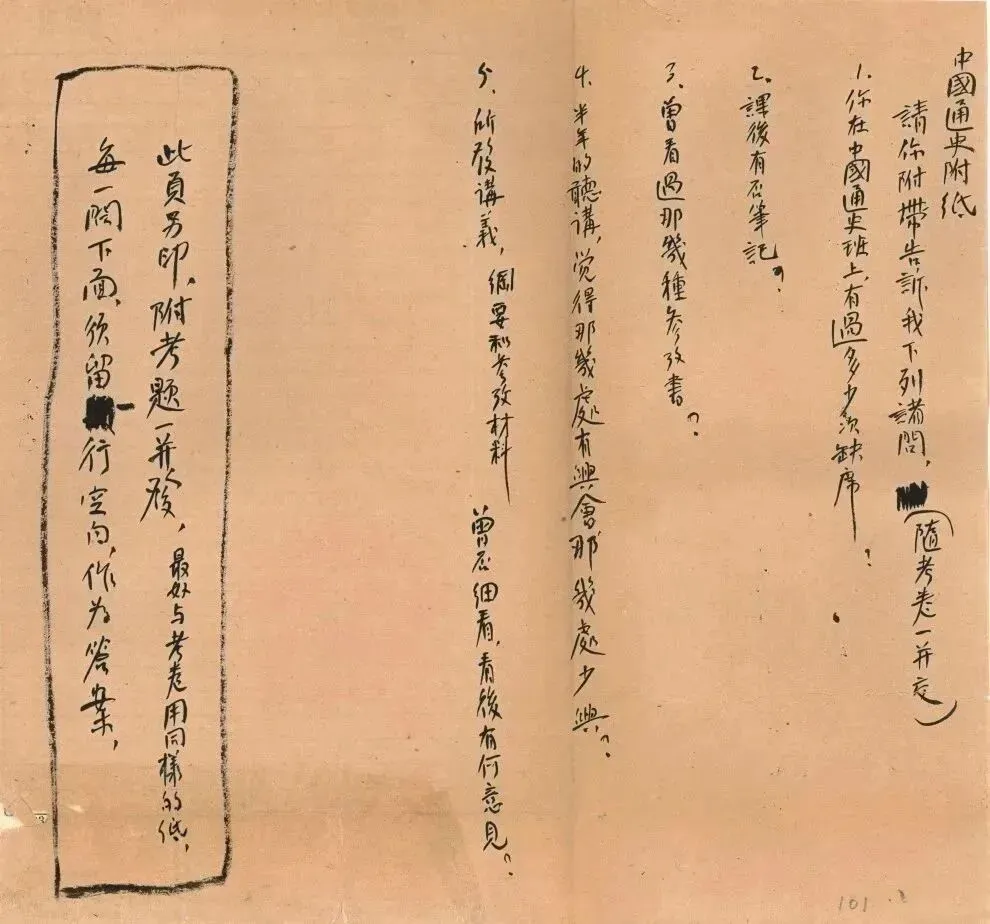 中國通史附紙
請你附帶告訴我下列諸問，（隨考卷一并交）
1、你在中國通史班上，有過多少次缺席？
2、課後有否筆記？
3、曾看過那幾種参攷書？
4、半年的聽講，觉得那幾處有興會那幾處少興？
5、所發講義，綱要和参攷材料曾否细看，看後有何意見？
此頁另印，附考题一并發，最好与考卷用同樣的纸，
每一問下面，须留一行空白，作为答案，
101